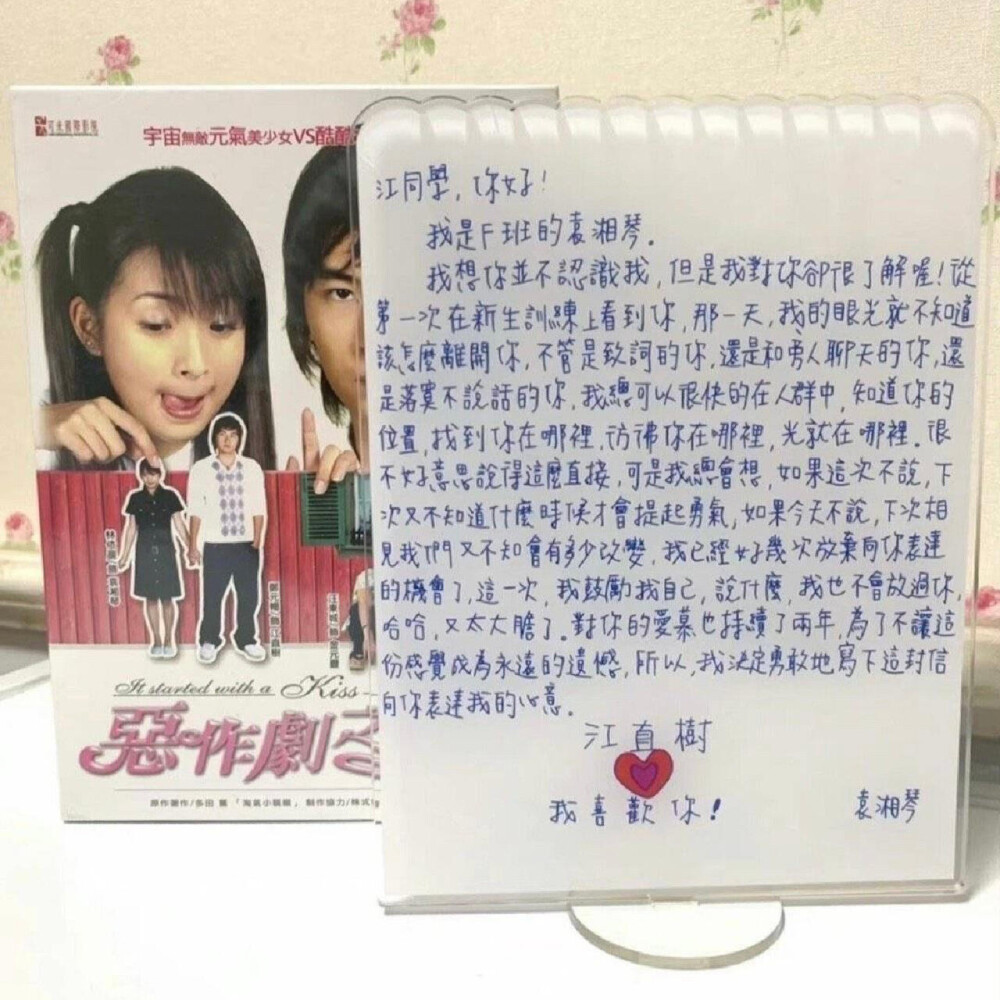 可米國際影視
宇宙無敵元氣美少女VS酷酷
It started with a Kiss
惡作劇之
原作著作/多田 薰 「淘氣小親親」 製作協力/株式
江同學，你好！
我是F班的袁湘琴．
我想你並不認識我，但是我對你卻很了解喔！從
第一次在新生訓練上看到你，那一天，我的眼光就不知道
該怎麼離開你，不管是致詞的你，還是和旁人聊天的你，還
是落寞不說話的你，我總可以很快的在人群中，知道你的
位置，找到你在哪裡，彷彿你在哪裡，光就在哪裡．很
不好意思說得這麼直接，可是我總會想，如果這次不說，下
次又不知道什麼時候才會提起勇氣，如果今天不說，下次相
見我們又不知會有多少改變，我已經好幾次放棄向你表達
的機會了，這一次，我鼓勵我自己，說什麼，我也不會放過你，
哈哈，又太大膽了．對你的愛慕也持續了兩年，為了不讓這
份感覺成為永遠的遺憾，所以，我決定勇敢地寫下這封信
向你表達我的心意．
江直樹
我喜歡你！
袁湘琴